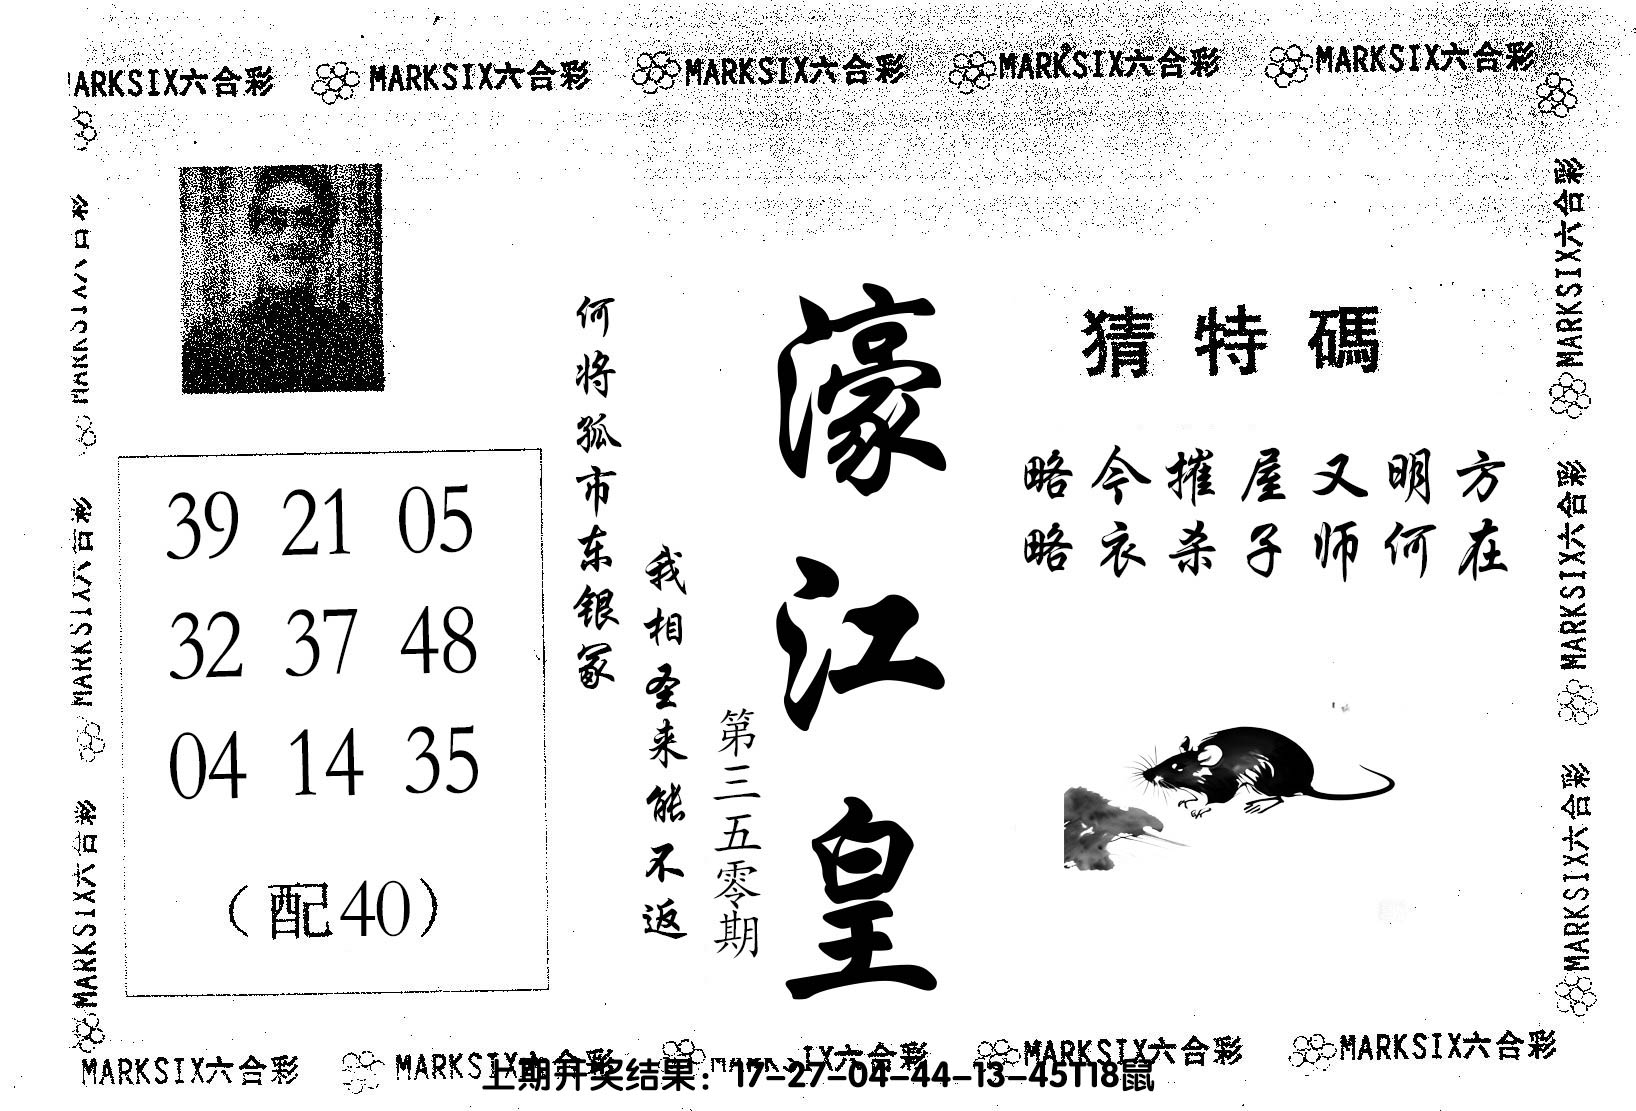 MARKSIX六合彩 MARKSIX六合彩 MARKSIX六合彩 MARKSIX六合彩 MARKSIX六合彩
濠江皇
第三五零期
猜特碼
略今摧屋又明方
略衣杀子师何在
何将狐市东银冢
我相圣来能不返
39 21 05
32 37 48
04 14 35
（配40）
MARKSIX六合彩
MARKSIX六合彩
MARKSIX六合彩
MARKSIX六合彩
MARKSIX六合彩
MARKSIX六合彩
MARKSIX六合彩 MARKSIX六合彩 MARKSIX六合彩 MARKSIX六合彩 MARKSIX六合彩
上期开奖结果：17-27-04-44-13-45T18鼠